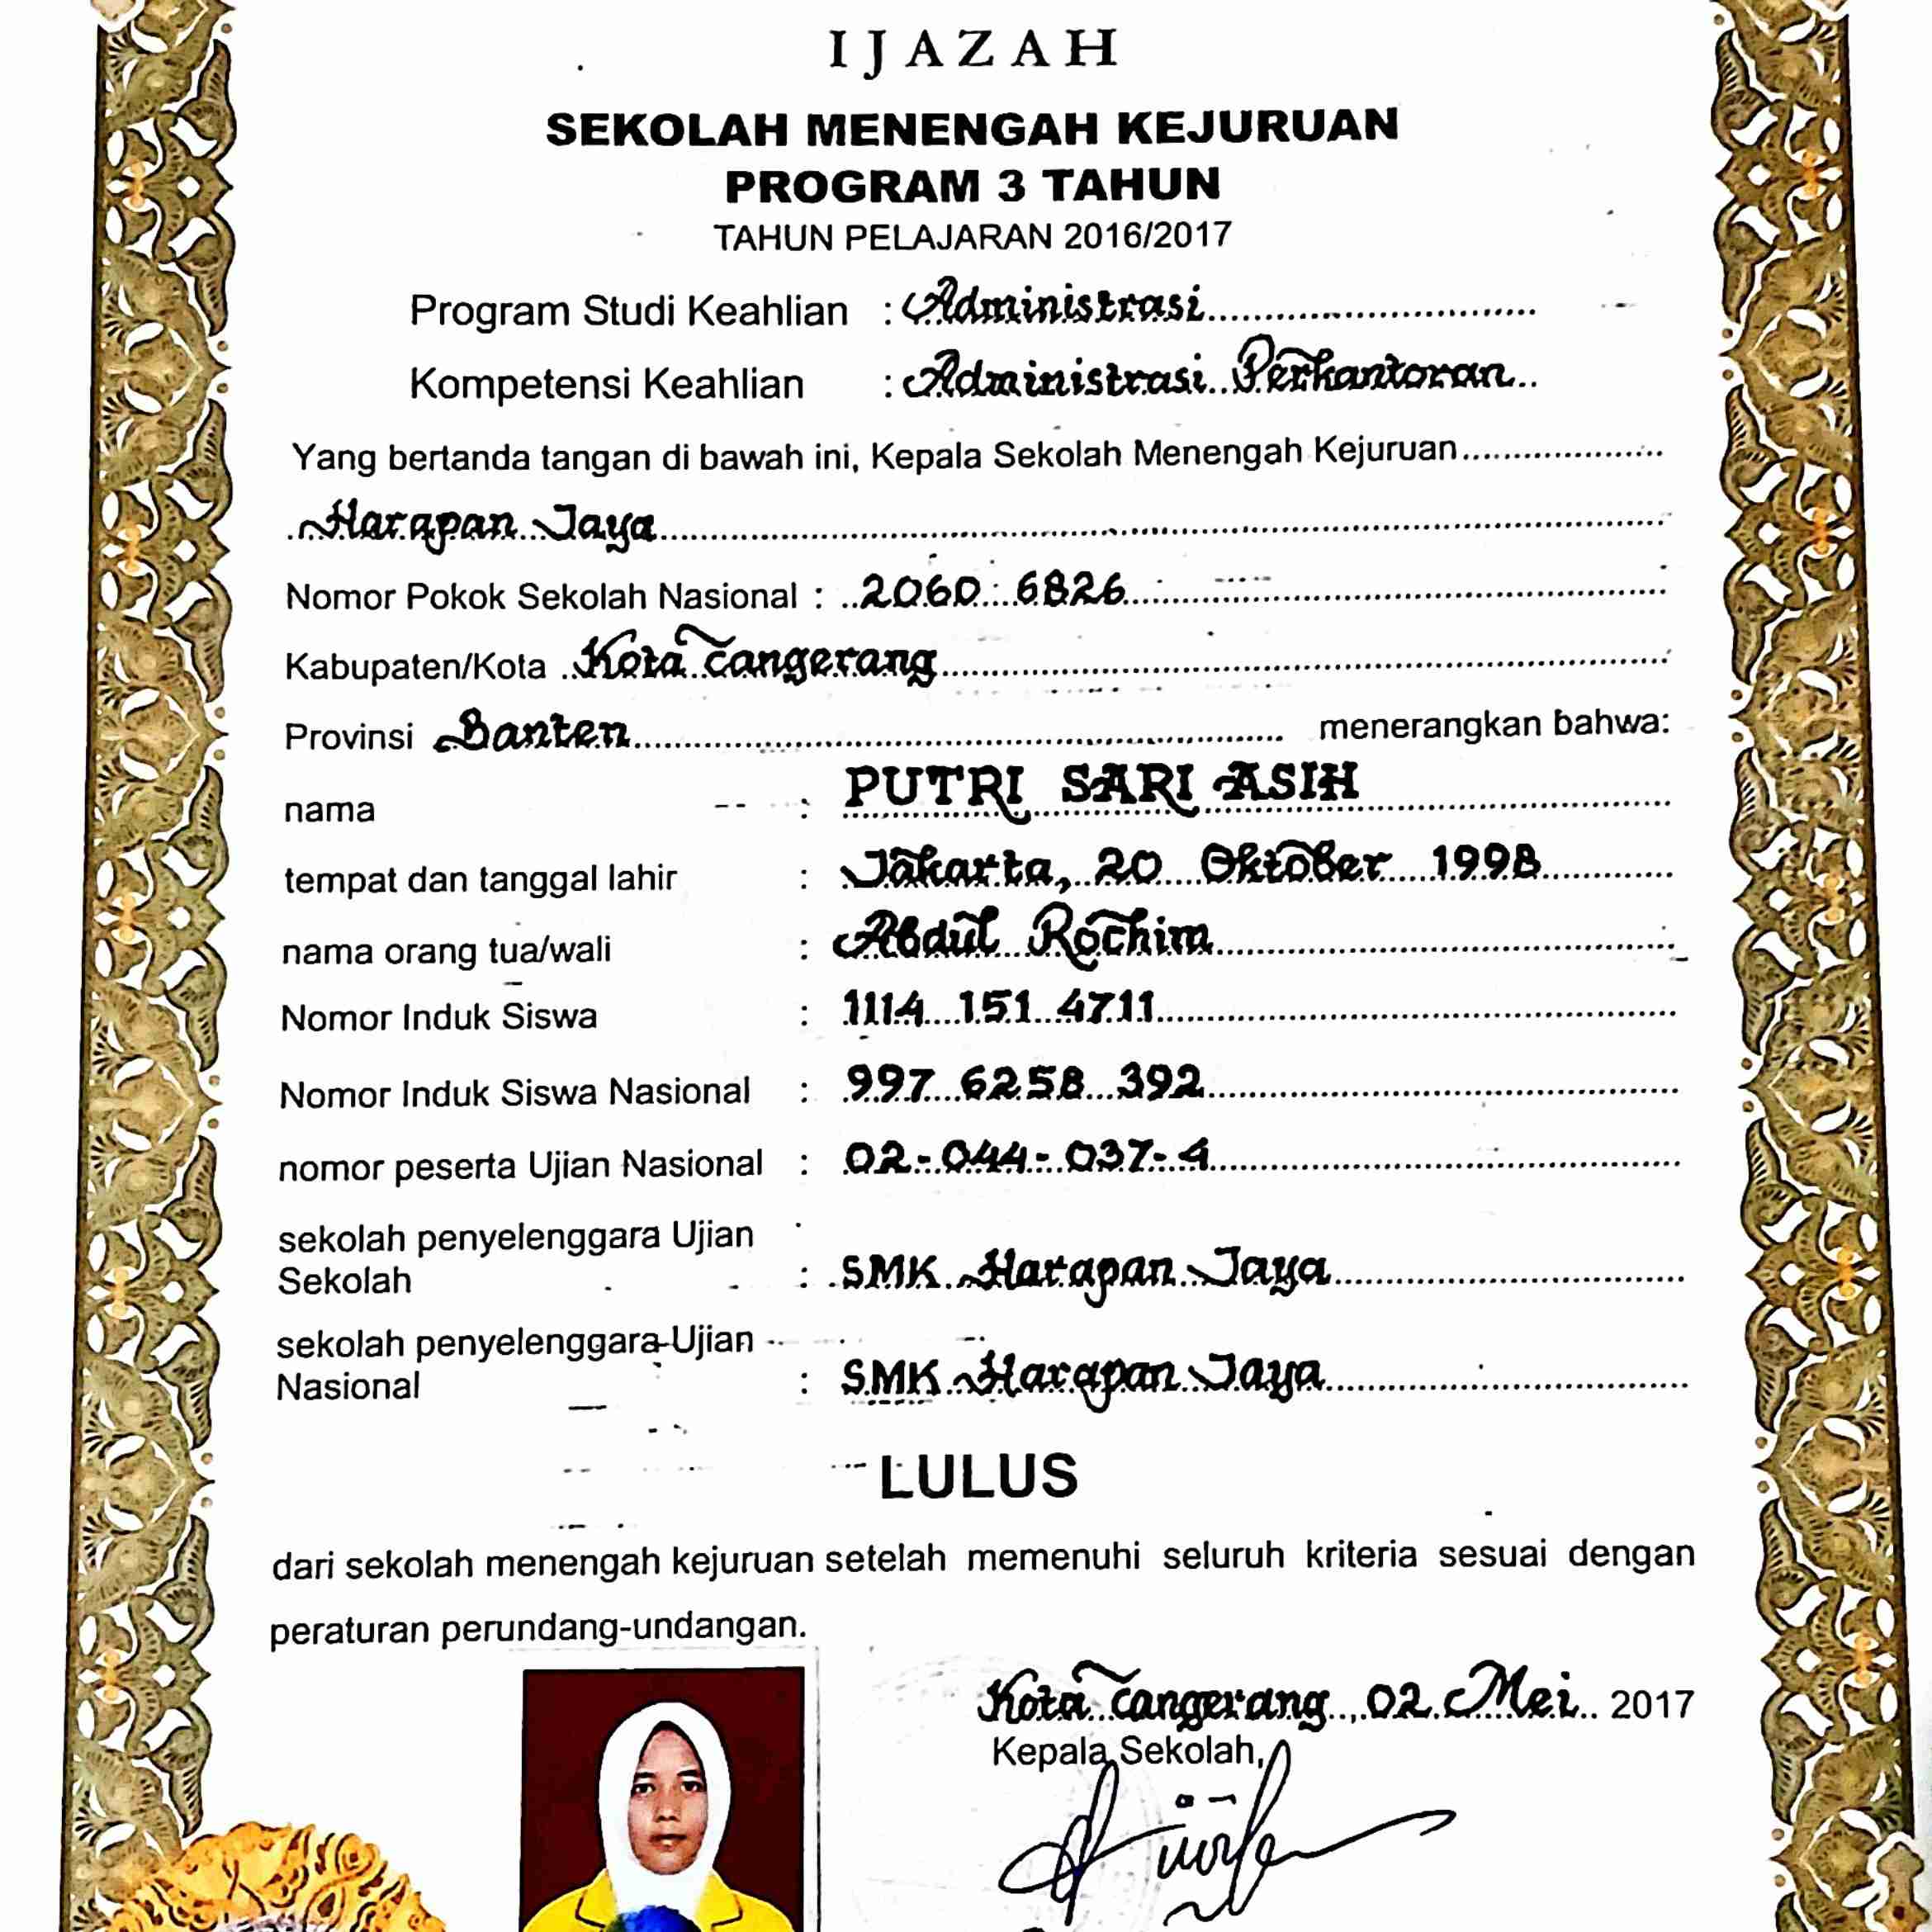 IJAZAH
SEKOLAH MENENGAH KEJURUAN
PROGRAM 3 TAHUN
TAHUN PELAJARAN 2016/2017
Program Studi Keahlian : Administrasi
Kompetensi Keahlian : Administrasi Perkantoran
Yang bertanda tangan di bawah ini, Kepala Sekolah Menengah Kejuruan
Harapan Jaya
Nomor Pokok Sekolah Nasional : 2060 6826
Kabupaten/Kota Kota Tangerang
Provinsi Banten menerangkan bahwa:
nama : PUTRI SARI ASIH
tempat dan tanggal lahir : Jakarta, 20 Oktober 1998
nama orang tua/wali : Abdul Rochim
Nomor Induk Siswa : 1114 151 4711
Nomor Induk Siswa Nasional : 997 6258 392
nomor peserta Ujian Nasional : 02-044-037-4
sekolah penyelenggara Ujian
Sekolah : SMK Harapan Jaya
sekolah penyelenggara Ujian
Nasional : SMK Harapan Jaya
LULUS
dari sekolah menengah kejuruan setelah memenuhi seluruh kriteria sesuai dengan
peraturan perundang-undangan.
Kota Tangerang, 02 Mei 2017
Kepala Sekolah,